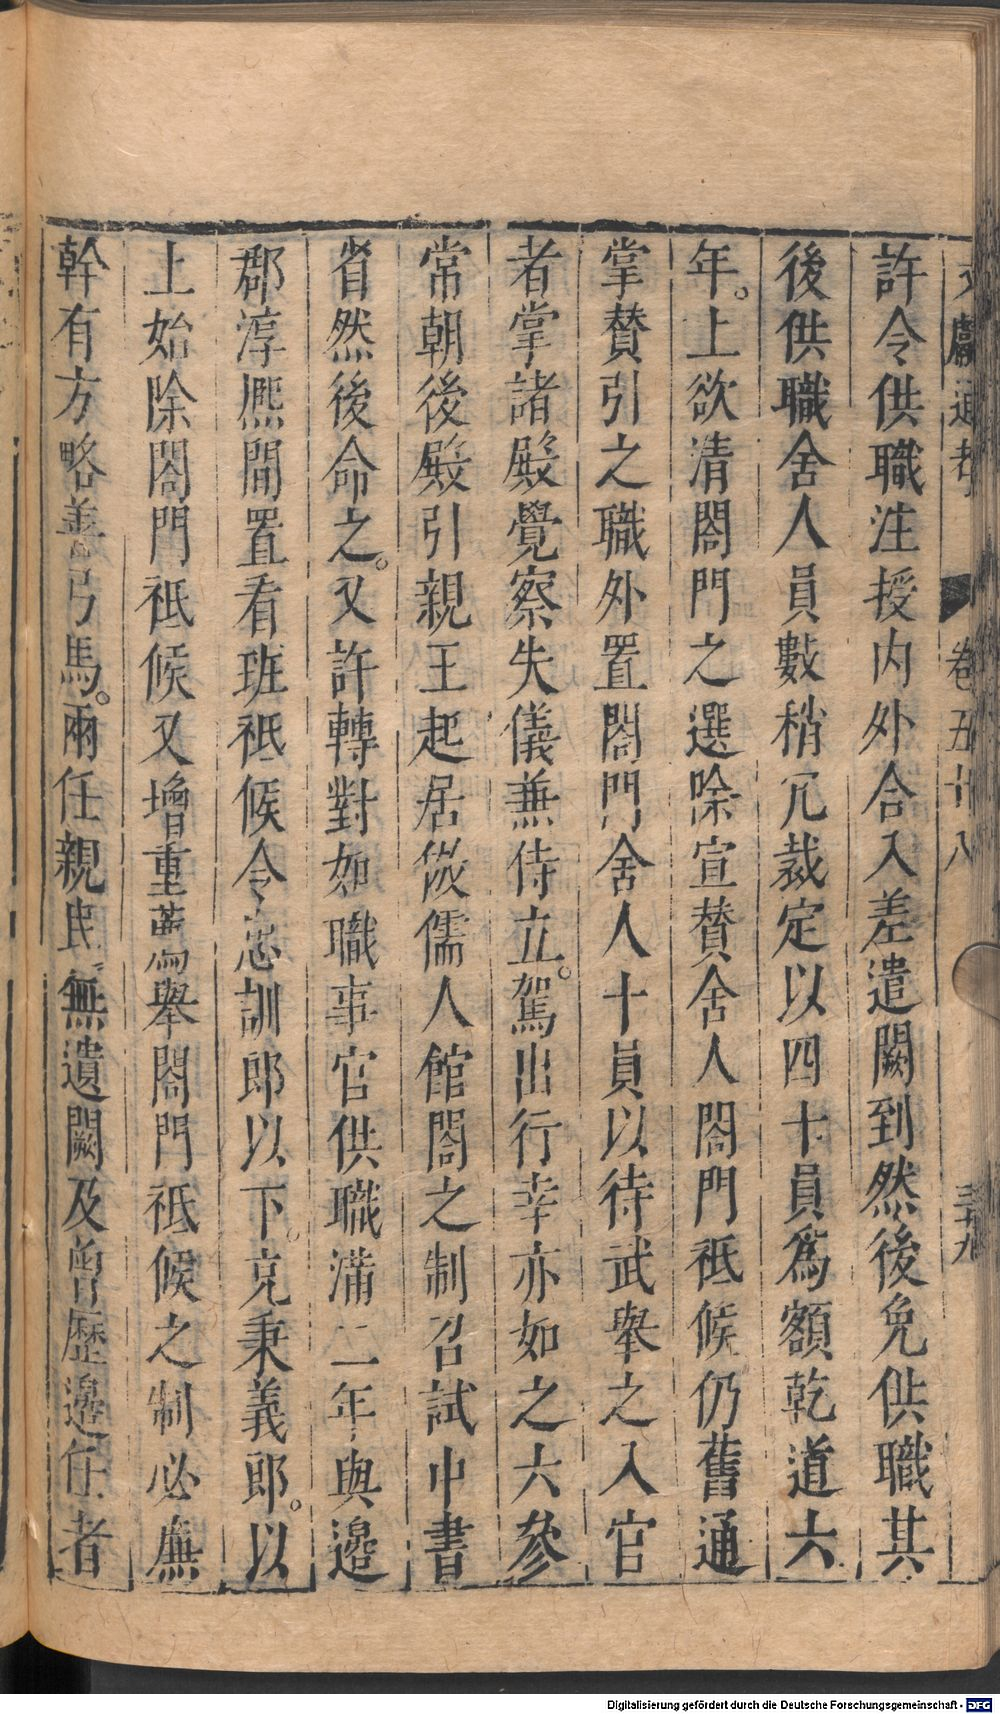 文獻通考 卷五十八 三十九
許令供職注授内外合入差遣闕到然後免供職其
後供職舍人員數稍冗裁定以四十員爲額乾道六
年。上欲清閤門之選除宣贊舍人閤門祗候仍舊通
掌贊引之職外置閤門舍人十員以待武舉之入官
者掌諸殿覺察失儀兼侍立。駕出行幸亦如之六參
常朝後殿引親王起居倣儒人館閤之制召試中書
省然後命之。又許轉對如職事官供職滿二年與邊
郡淳熈間置看班祗候令忠訓郎以下。充秉義郎。以
上始除閤門祗候又增重薦舉閤門祗候之制必廉
幹有方略善弓馬。兩任親民無遺闕及曾歷邊任者
Digitalisierung gefördert durch die Deutsche Forschungsgemeinschaft - DFG